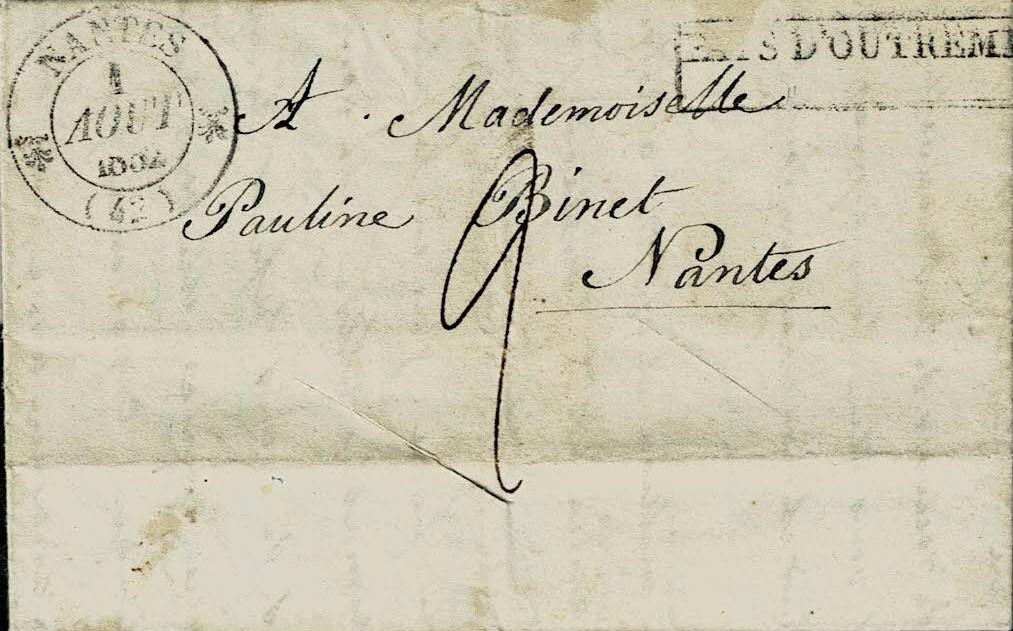 NANTES
1
AOUT
1832
(42)
PAYS D'OUTREME
A . Mademoiselle
Pauline Binet
Nantes
2